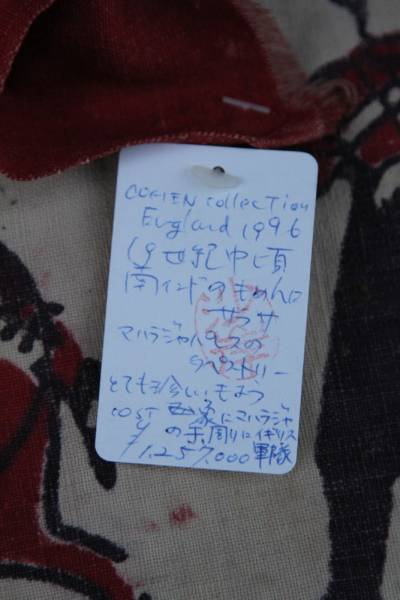 COHEN collection
England 1996
19世紀中頃
南インドのもめん
サラサ
マハラジャパレスの
タペストリー
とても珍しいもよう
COST 画象にマハラジャ
の末周りにイギリス
¥1,257,000 軍隊